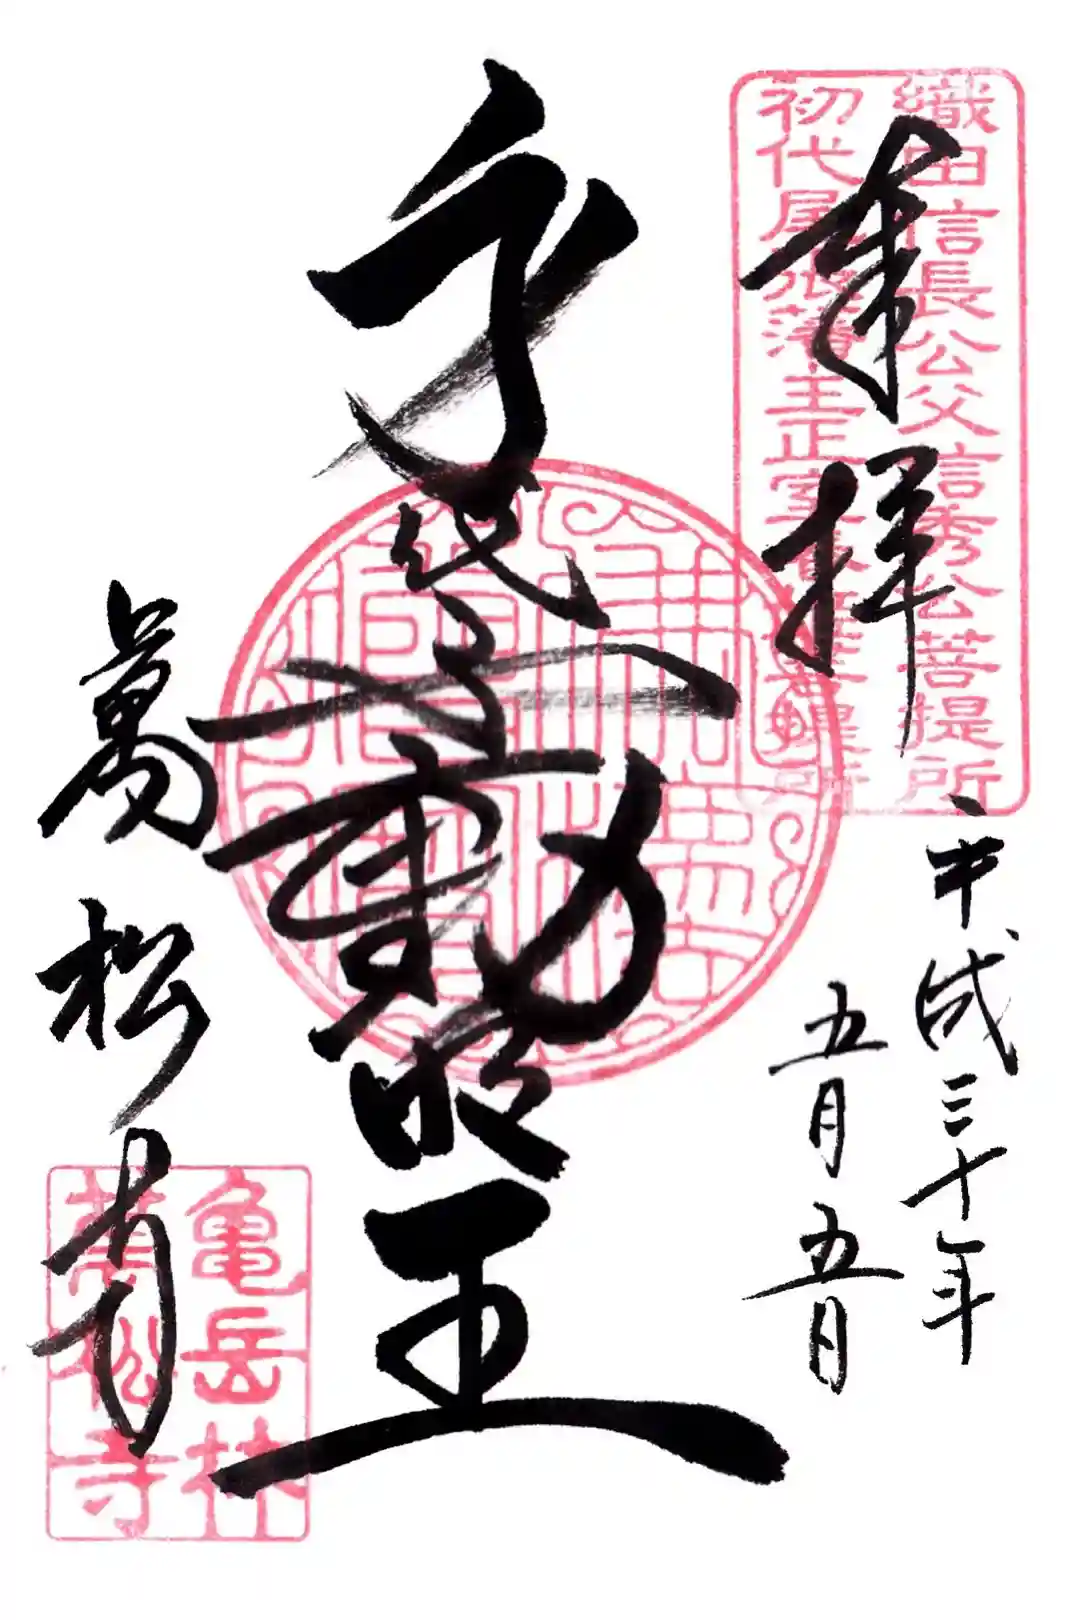 奉拝
織田信長公父信秀公菩提所
初代尾張藩主正室春姫菩提所
平成三十年
五月五日
身代不動明王
萬松寺
亀岳林
萬松寺